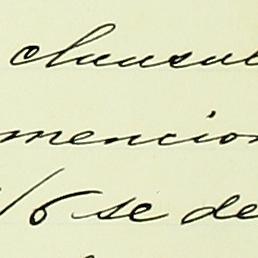 clausul
mencion
/6 se de